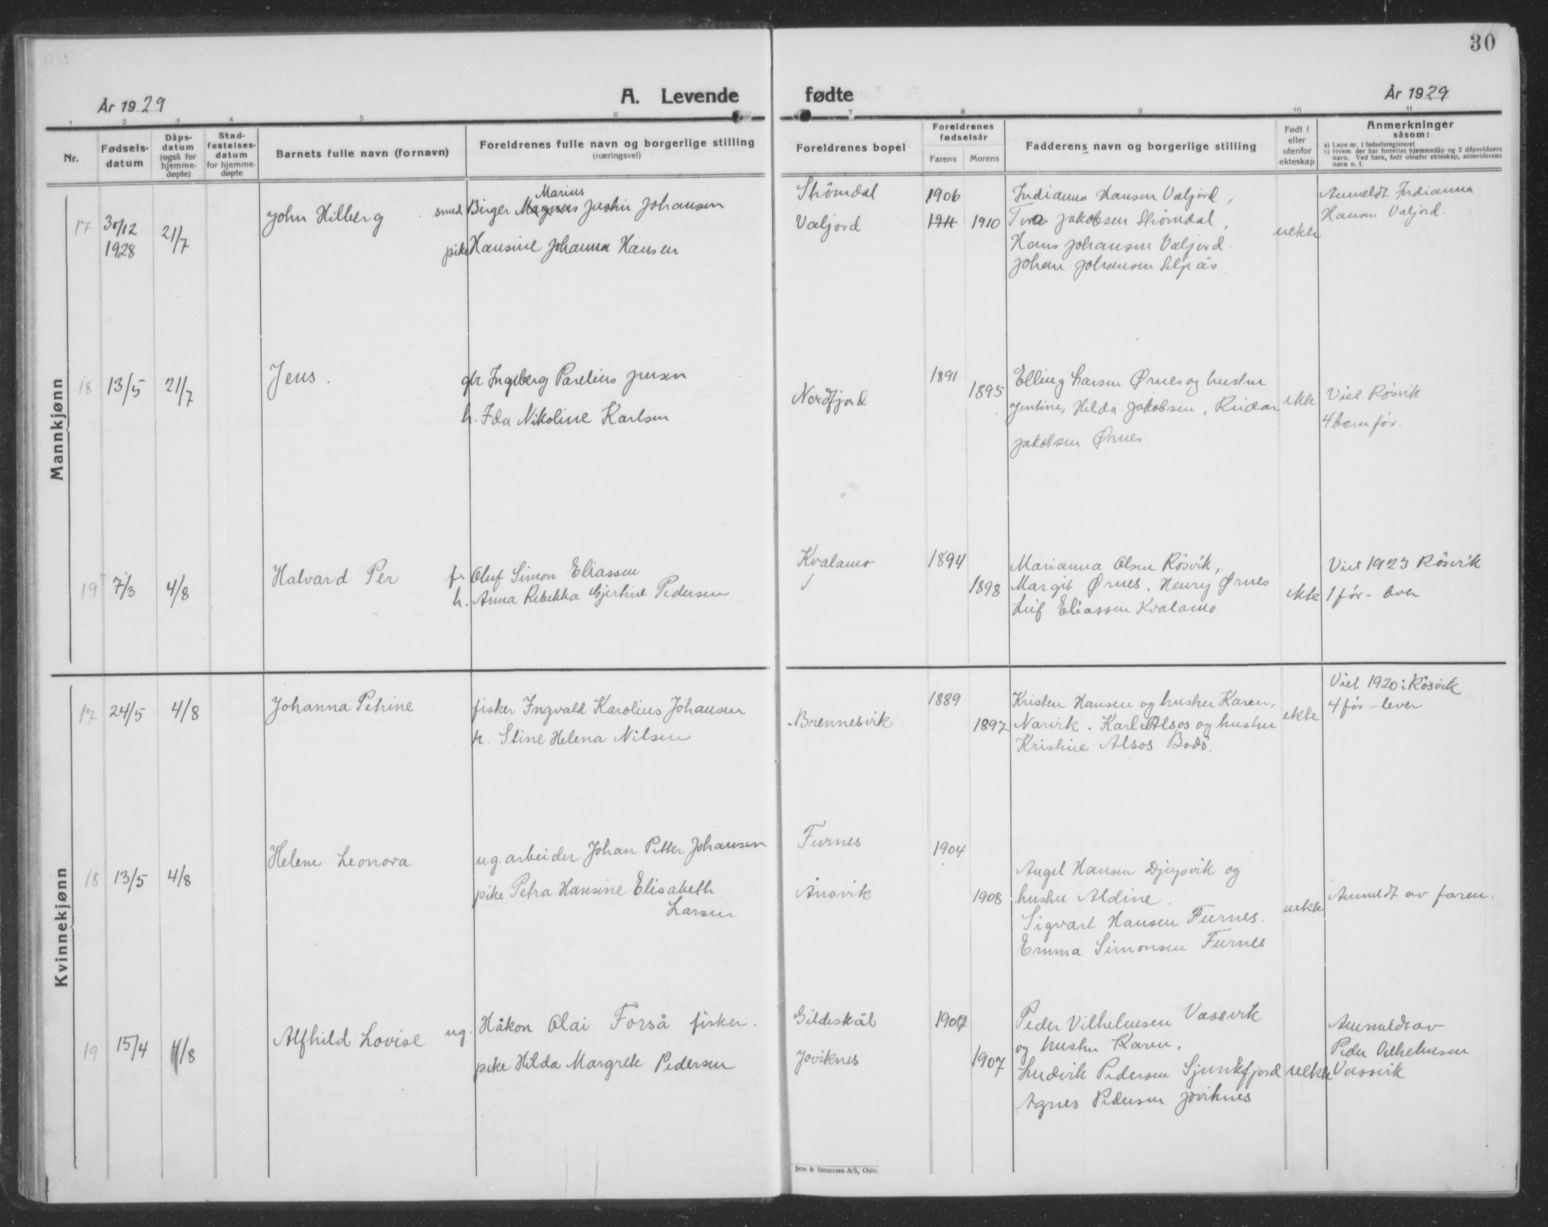 30
År 1929
A. Levende
fødte
År 1929
1 2 3 4 5 6 7 8 9 10 11
Nr.
Fødsels-
datum
Dåps-
datum
(også for
hjemme-
døpte)
Stad-
festelses-
datum
for hjemme-
døpte
Barnets fulle navn (fornavn)
Foreldrenes fulle navn og borgerlige stilling
(næringsvei)
Foreldrenes bopel
Foreldrenes
fødselsår
Farens
Morens
Fadderens navn og borgerlige stilling
Født i
eller
utenfor
ekteskap
Anmerkninger
såsom:
a) Løpe nr. i fødselsregisteret
b) Hvem der har forrettet hjemmedåp og 2 dåpsvidners
navn. Ved barn, født utenfor ekteskap, anmelderens
navn o. l.
Mannkjønn
17
30/12
1928
21/7
John Hilberg
Marius
smed Birger Magnus Justin Johansen
pike Hansine Johanna Hansen
Strømdal
Valjord
1906
1911 1910
Indianna Hansen Valjord,
Tora Jakobsen Strømdal,
Hans Johansen Valjord
Johan Johansen
uekte
Anmeldt Indianna
Hansen Valjord.
18
13/5
21/7
Jens.
gbr Ingeberg Parelius Jensen
h. Ida Nikoline Karlsen
Nordfjord
1891
1895
Elling Larsen Ørnes og hustru
Jentine, Hilda Jakobsen, Reidar
Jakobsen Ørnes.
ekte
Viet Røsvik
4 barn før.
19
7/3
4/8
Halvard Per
fr Oluf Simon Eliassen
h. Anna Rebekka Gjertine Pedersen
Kvalamo
1894
1898
Marianna Olsen Røsvik,
Margit Ørnes, Henry Ørnes
Leif Eliassen Kvalamo
ekte
Viet 1923 Røsvik
1 før - lever
Kvinnekjønn
17
24/5
4/8
Johanna Petrine
fisker Ingvald Karolius Johansen
h. Stine Helena Nilsen
Brennesvik
1889
1897
Kristen Hansen og hustru Karen,
Narvik. Karl Alsos og hustru
Kristine Alsos Bodø.
ekte
Viet 1920: Røsvik
4 før - lever
18
13/5
4/8
Helene Leonora
ug. arbeider Johan Petter Johansen
pike Petra Hansine Elisabeth
Larsen
Furnes
Ånsvik
1904
1908
Angel Hansen Djupvik og
hustru Aldine.
Sigvart Hansen Furnes.
Emma Simonsen Furnes
uekte
Anmeldt av faren.
19
15/4
4/8
Alfhild Lovise
ug. Håkon Olai Forså fisker.
pike Hilda Margrete Pedersen
Gildeskål
Joviknes
1907
1907
Peder Vilhelmsen Vassvik
og hustru Karen,
Ludvik Pedersen Sjunkfjord
Agnes Pedersen Joviknes
uekte
Anmeldt av
Peder Vilhelmsen
Vassvik
Sem & Stenersen A/S, Oslo.